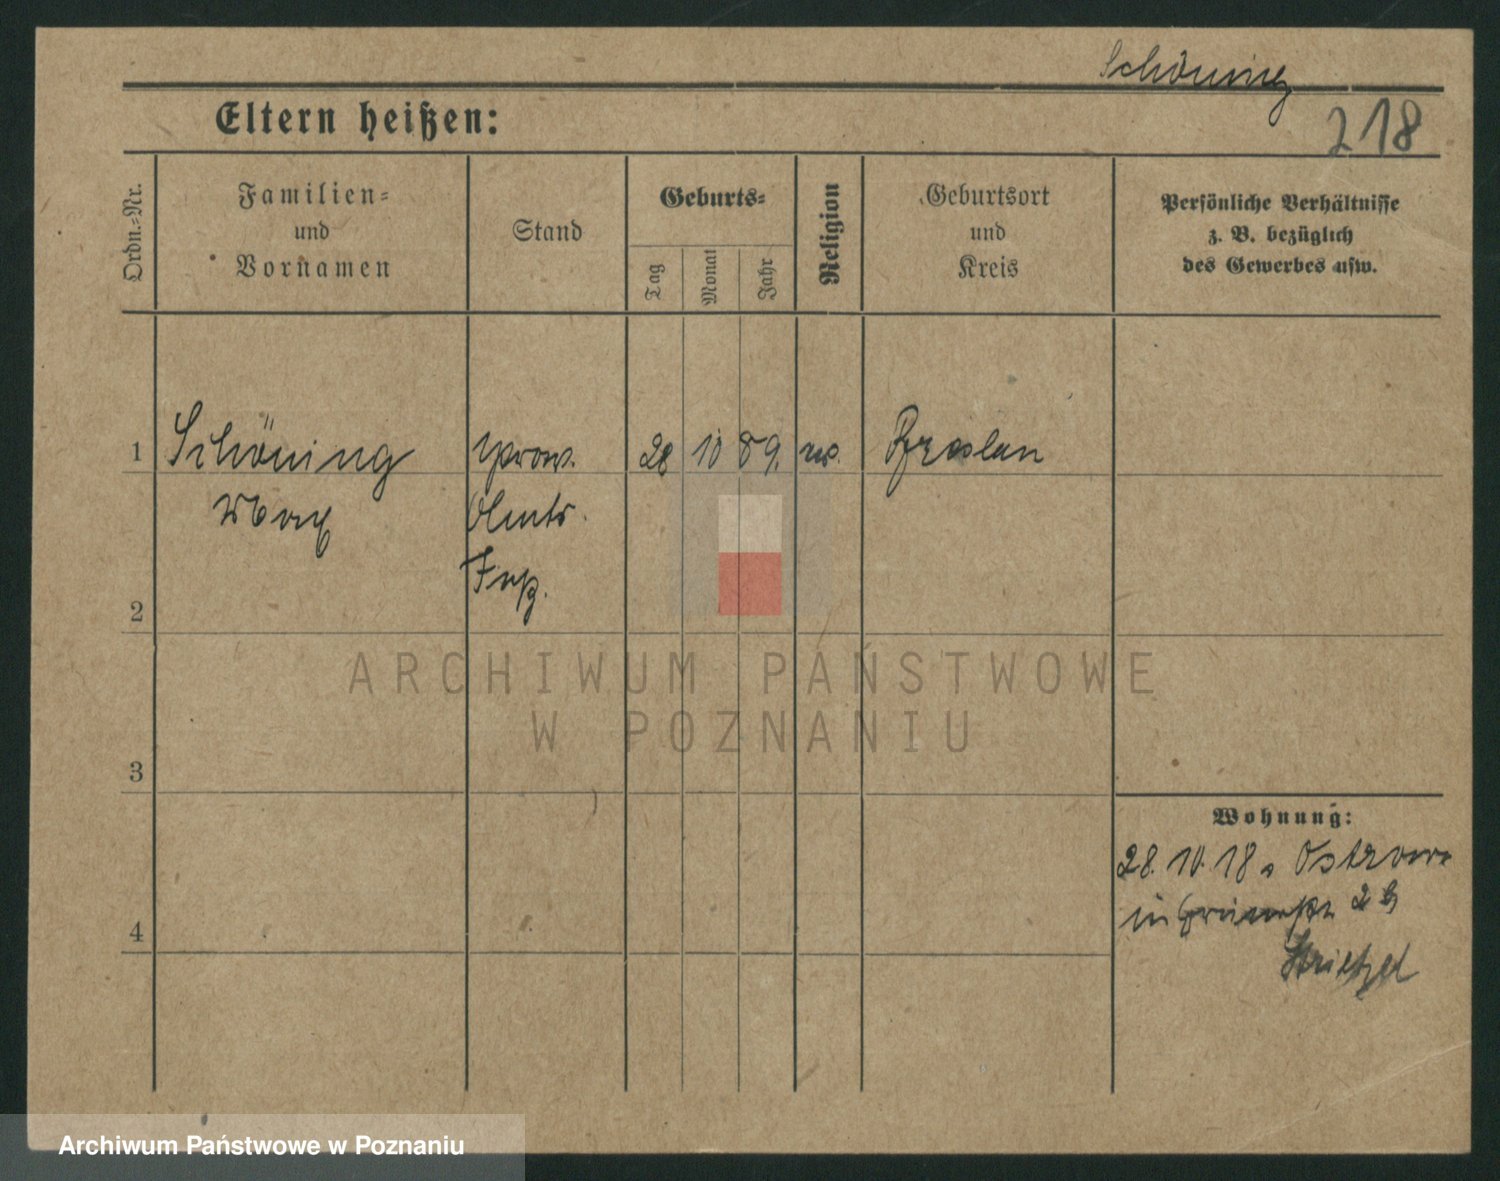 Schöning
218
Eltern heißen:
Ordn.-Nr.
Familien-
und
Vornamen
Stand
Geburts-
Tag
Monat
Jahr
Religion
Geburtsort
und
Kreis
Persönliche Verhältnisse
z. B. bezüglich
des Gewerbes usw.
1
Schöning
Max
prov.
Amts
28
10
89.
ev.
Breslau
2
3
4
Wohnung:
28.10.18. Ostrowo
in 2
ARCHIWUM PAŃSTWOWE
W POZNANIU
Archiwum Państwowe w Poznaniu